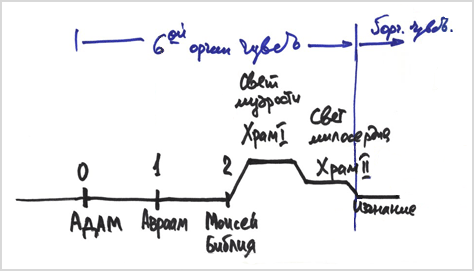 6ой орган чувств
5 орг. чувств.
Свет
мудрости
Храм I
Свет
милосердия
Храм II
0
1
2
АДАМ
Авраам
Моисей
Библия
Изгнание